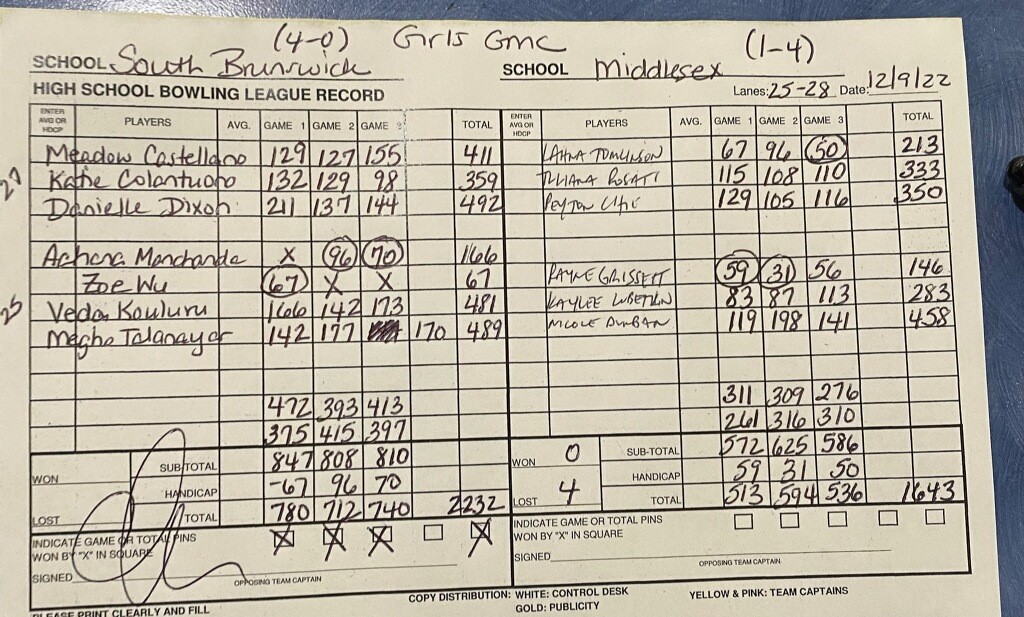 (4-0) Girls GMC (1-4)
SCHOOL South Brunswick SCHOOL Middlesex
HIGH SCHOOL BOWLING LEAGUE RECORD Lanes: 25-28 Date: 12/9/22
ENTER AVG OR HDCP PLAYERS AVG. GAME 1 GAME 2 GAME 3 TOTAL ENTER AVG OR HDCP PLAYERS AVG. GAME 1 GAME 2 GAME 3 TOTAL
Meadow Castellano 129 127 155 411 67 96 50 213
27 Katie Colantuono 132 129 98 359 115 108 110 333
Danielle Dixon 211 137 144 492 Peyton 129 105 116 350
Manchanda X 96 70 166
Zoe Wu 67 X X 67 Payne Grissett 59 31 56 146
25 Veda Kouluru 166 142 173 481 Kaylee 83 87 113 283
Megha Talanayar 142 177 170 489 Nicole 119 198 141 458
472 393 413 311 309 276
375 415 397 261 316 310
WON SUB-TOTAL 847 808 810 WON 0 SUB-TOTAL 572 625 586
HANDICAP -67 96 70 HANDICAP 59 31 50
LOST TOTAL 780 712 740 2232 LOST 4 TOTAL 513 594 536 1643
INDICATE GAME OR TOTAL PINS X X X X INDICATE GAME OR TOTAL PINS
WON BY "X" IN SQUARE WON BY "X" IN SQUARE
SIGNED SIGNED
OPPOSING TEAM CAPTAIN OPPOSING TEAM CAPTAIN
PLEASE PRINT CLEARLY AND FILL COPY DISTRIBUTION: WHITE: CONTROL DESK YELLOW & PINK: TEAM CAPTAINS
GOLD: PUBLICITY